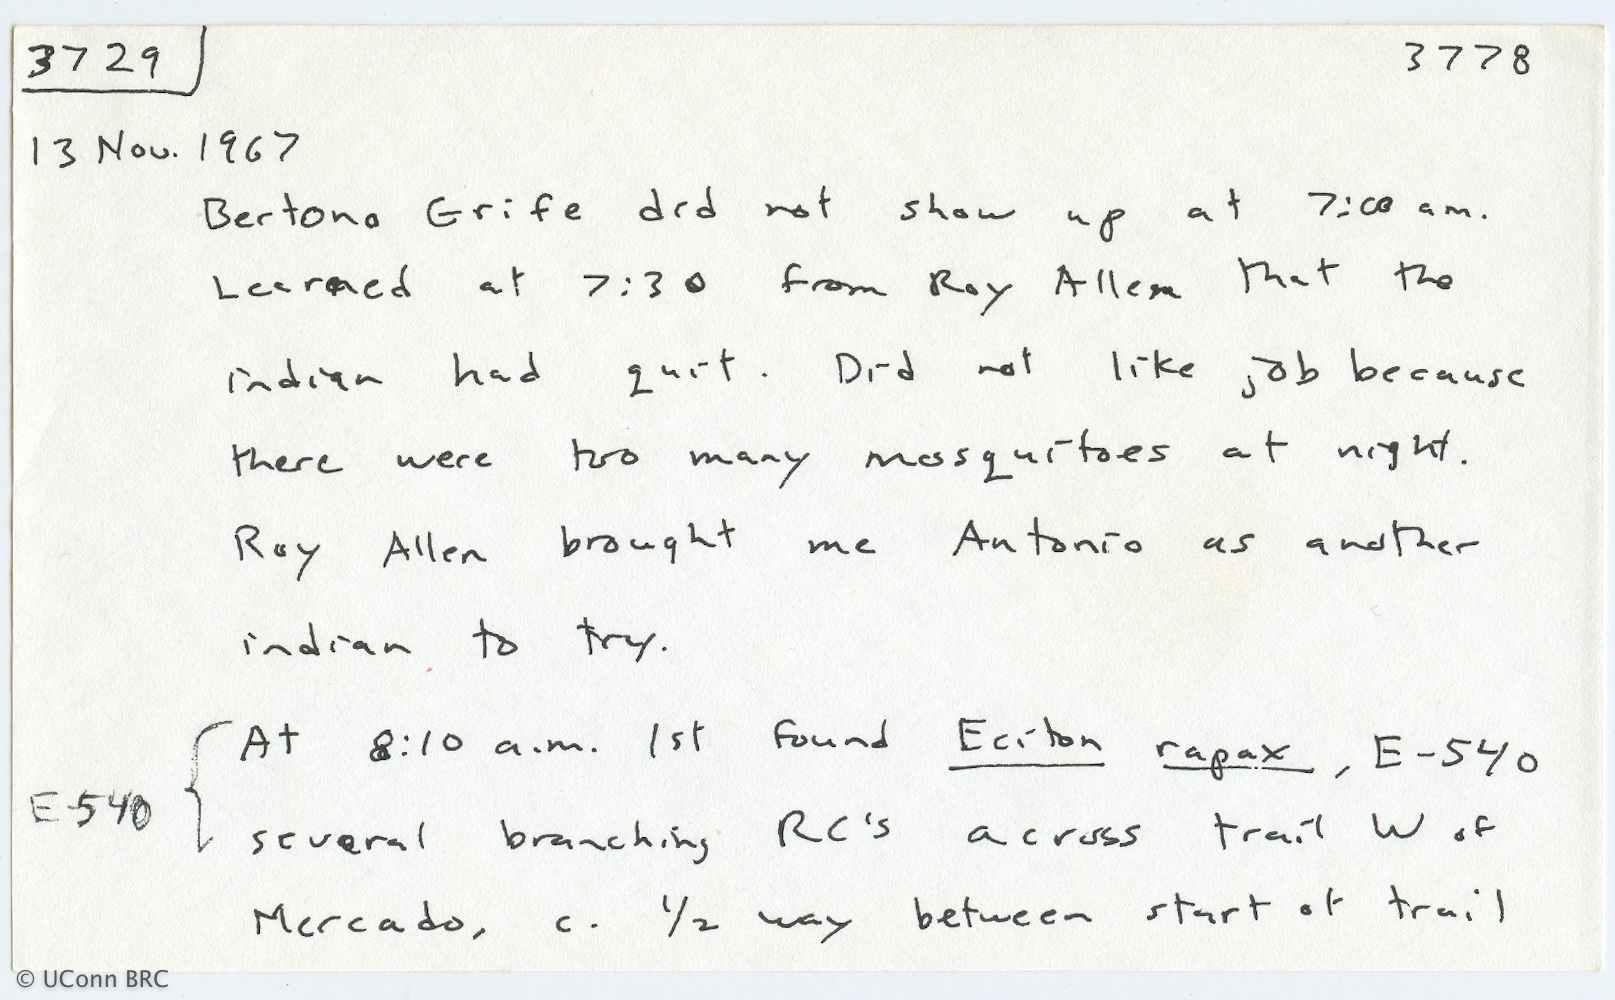 3729
3778
13 Nov. 1967
Bertono Grife did not show up at 7:00 am.
Learned at 7:30 from Roy Allen that the
indian had quit. Did not like job because
there were too many mosquitoes at night.
Roy Allen brought me Antonio as another
indian to try.
At 8:10 a.m. 1st found Eciton rapax, E-540
E-540
several branching RC's across trail W of
Mercado, c. 1/2 way between start of trail
© UConn BRC